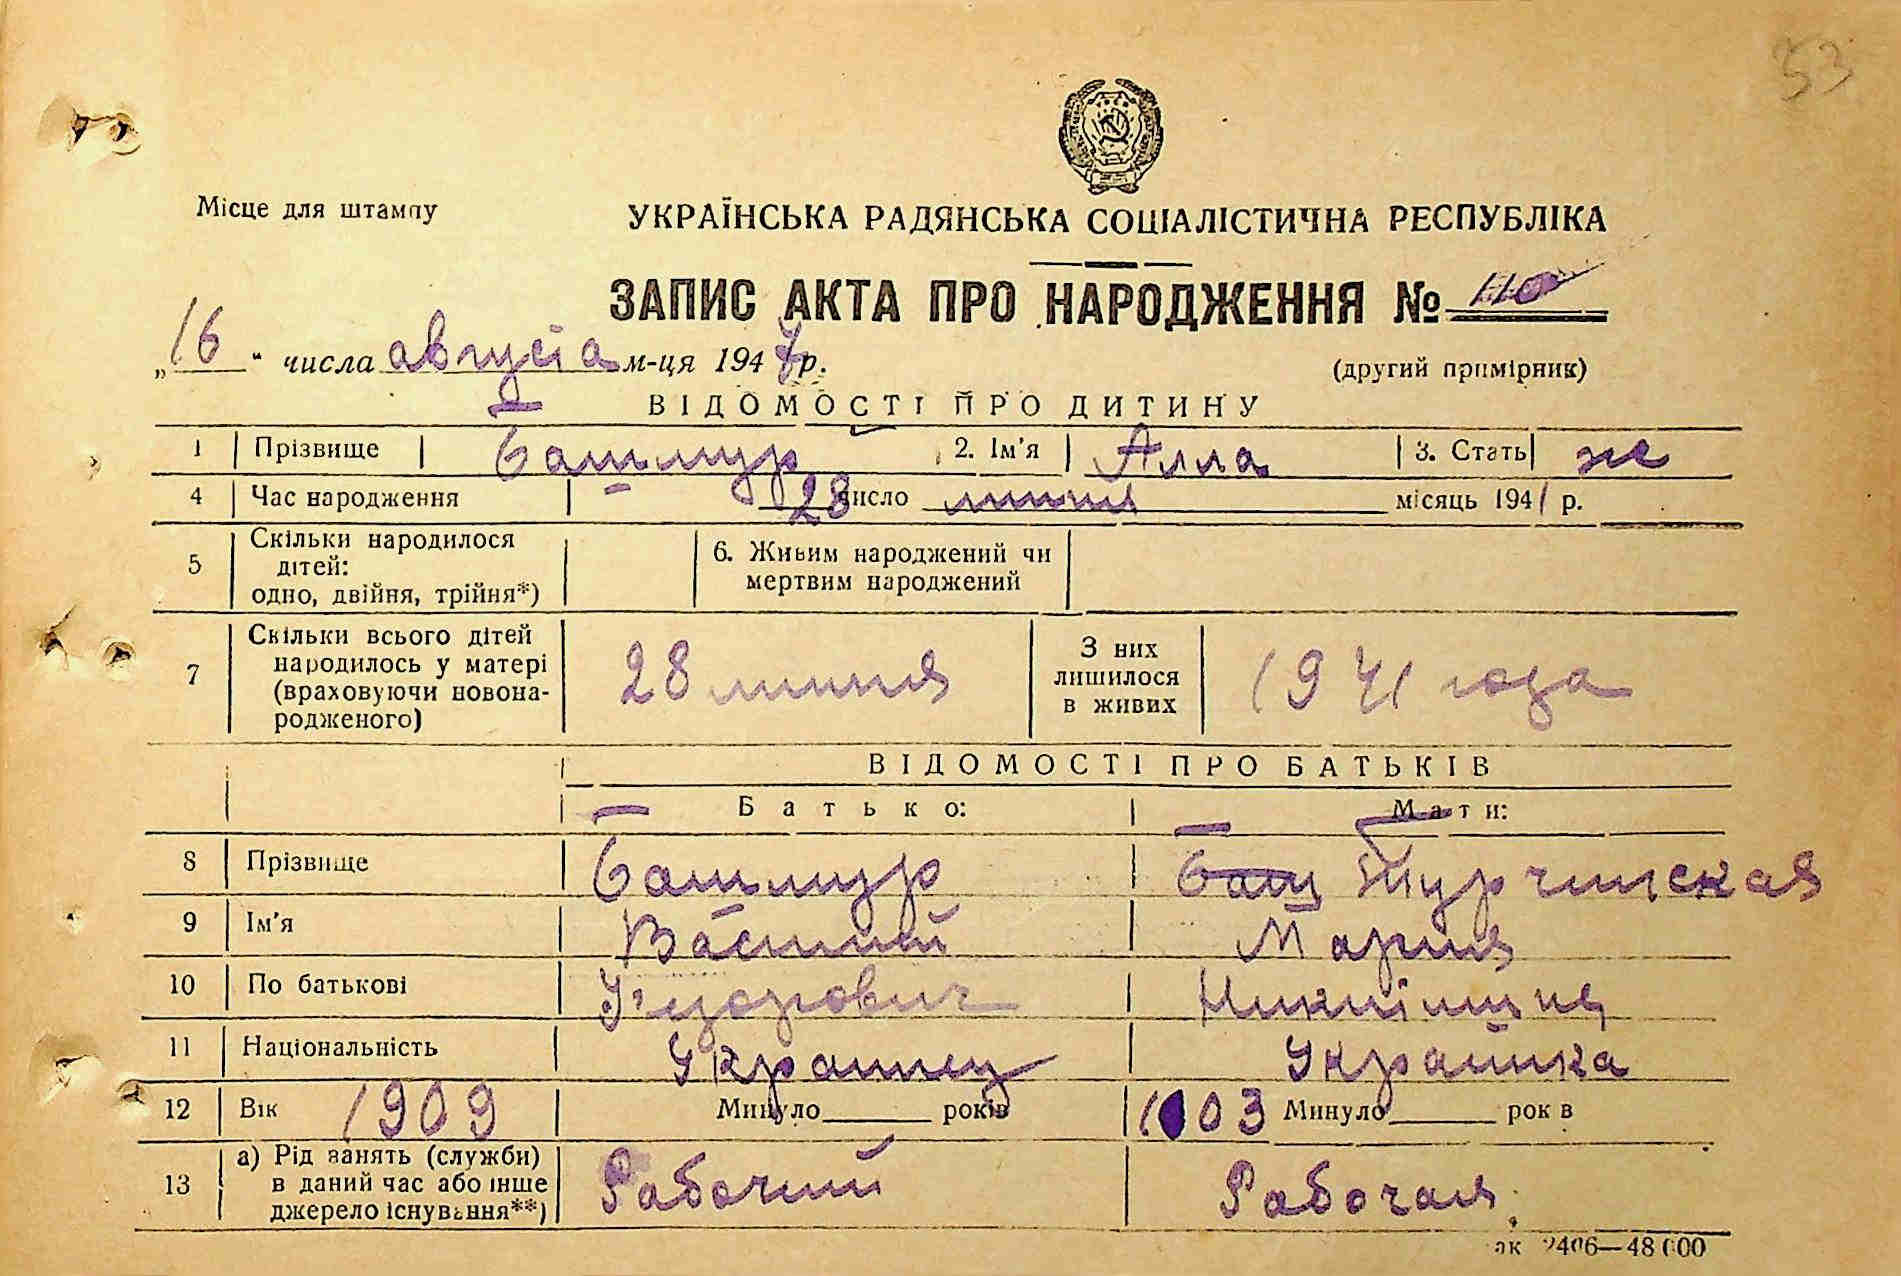 53
Місце для штампу
УКРАЇНСЬКА РАДЯНСЬКА СОЦІАЛІСТИЧНА РЕСПУБЛІКА
ЗАПИС АКТА ПРО НАРОДЖЕННЯ № 110
„16“ числа августа м-ця 194 р.
(другий примірник)
ВІДОМОСТІ ПРО ДИТИНУ
1 Прізвище Башмур 2. Ім'я Алла 3. Стать же
4 Час народження 28 число июня місяць 1941 р.
5 Скільки народилося дітей: одно, двійня, трійня*) 6. Живим народжений чи мертвим народжений
7 Скільки всього дітей народилось у матері (враховуючи новонародженого) 28 июня З них лишилося в живих 1941 года
ВІДОМОСТІ ПРО БАТЬКІВ
Батько: Мати:
8 Прізвище Башмур Баш Турчинская
9 Ім'я Василий Мария
10 По батькові Федорович
11 Національність Украинец Украинка
12 Вік 1909 Минуло рокiв 1903 Минуло рок в
13 а) Рід занять (служби) в даний час або інше джерело існування**) Рабочий Рабочая
2406—48 000